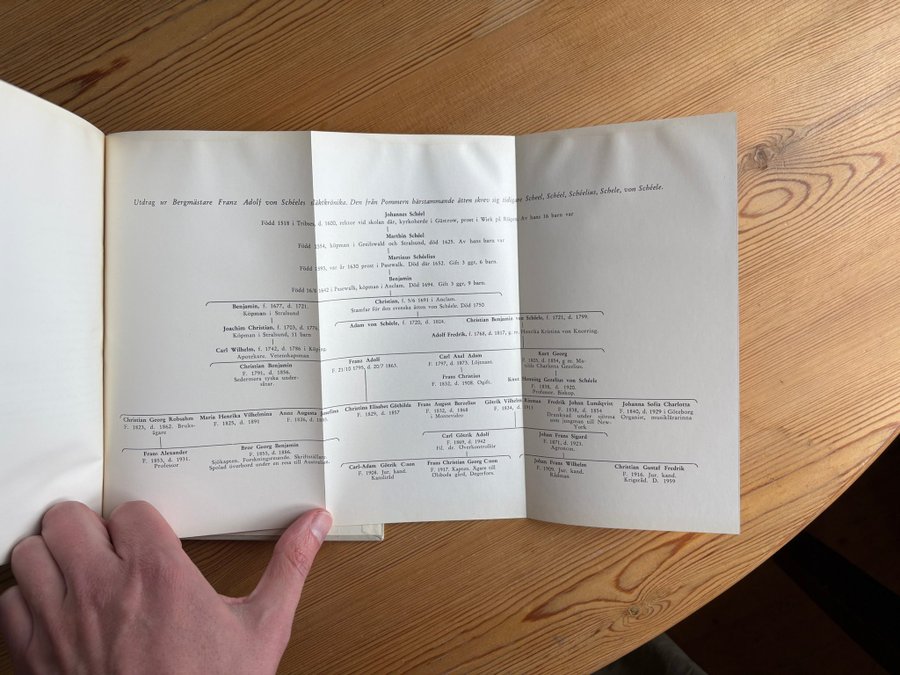 Utdrag ur Bergmästare Franz Adolf von Schéeles släktkrönika. Den från Pommern härstammande ätten skrev sig tidigare Scheel, Schéel, Schéelius, Schele, von Schéele.
Johannes Schéel
Född 1518 i Tribses, d. 1600, rektor vid skolan där, kyrkoherde i Güstrow, prost i Wiek på Rügen. Av hans 16 barn var
Marthin Schéel
Född 1554, köpman i Greifswald och Stralsund, död 1625. Av hans barn var
Martinus Schéelius
Född 1593, var år 1630 prost i Pasewalk. Död där 1652. Gift 3 ggr, 6 barn.
Benjamin
Född 16/6 1642 i Pasewalk, köpman i Anclam. Död 1694. Gift 3 ggr, 9 barn.
Benjamin, f. 1677, d. 1721.
Köpman i Stralsund
Christian, f. 5/6 1691 i Anclam.
Stamfar för den svenska ätten von Schéele. Död 1750
Joachim Christian, f. 1703, d. 1776.
Köpman i Stralsund, 11 barn
Adam von Schéele, f. 1720, d. 1804.
Christian Benjamin von Schéele, f. 1721, d. 1759.
Adolf Fredrik, f. 1768, d. 1817, g. m. Henrika Kristina von Knorring.
Carl Wilhelm, f. 1742, d. 1786 i Köping.
Apotekare. Vetenskapsman
Christian Benjamin
F. 1791, d. 1856.
Sedermera tyska undersåtar.
Franz Adolf
F. 21/10 1795, d. 20/7 1865.
Carl Axel Adam
F. 1797, d. 1873. Löjtnant.
Kurt Georg
F. 1805, d. 1854, g. m. Mathilde Charlotta Gezelius.
Frans Christian
F. 1832, d. 1908. Ogift.
Knut Henning Gezelius von Schéele
F. 1838, d. 1920.
Professor. Biskop.
Christian Georg Robsahm
F. 1823, d. 1862. Bruksägare
Maria Henrika Vilhelmina
F. 1825, d. 1891
Anna Augusta Josefina
F. 1826, d. 1885
Christina Elisabet Göthilda
F. 1829, d. 1857
Frans August Berzelius
F. 1832, d. 1868
i Montevideo
Götrik Vilhelm Rinman
F. 1834, d. 1911
Fredrik Johan Lundqvist
F. 1838, d. 1854
Drunknad under sjöresa som jungman till New-York
Johanna Sofia Charlotta
F. 1840, d. 1929 i Göteborg
Organist, musiklärarinna
Franz Alexander
F. 1853, d. 1931.
Professor
Bror Georg Benjamin
F. 1855, d. 1886.
Sjökapten. Forskningsresande. Skriftställare.
Spolad överbord under en resa till Australien.
Carl Götrik Adolf
F. 1869, d. 1942
Fil. dr. Överkontrollör
Johan Frans Sigard
F. 1871, d. 1923.
Agronom.
Carl-Adam Götrik C:son
F. 1908. Jur. kand.
Kansliråd
Frans Christian Georg C:son
F. 1917. Kapten. Ägare till
Ölsboda gård, Degerfors.
Johan Frans Wilhelm
F. 1909. Jur. kand.
Rådman
Christian Gustaf Fredrik
F. 1916. Jur. kand.
Krigsråd. D. 1959